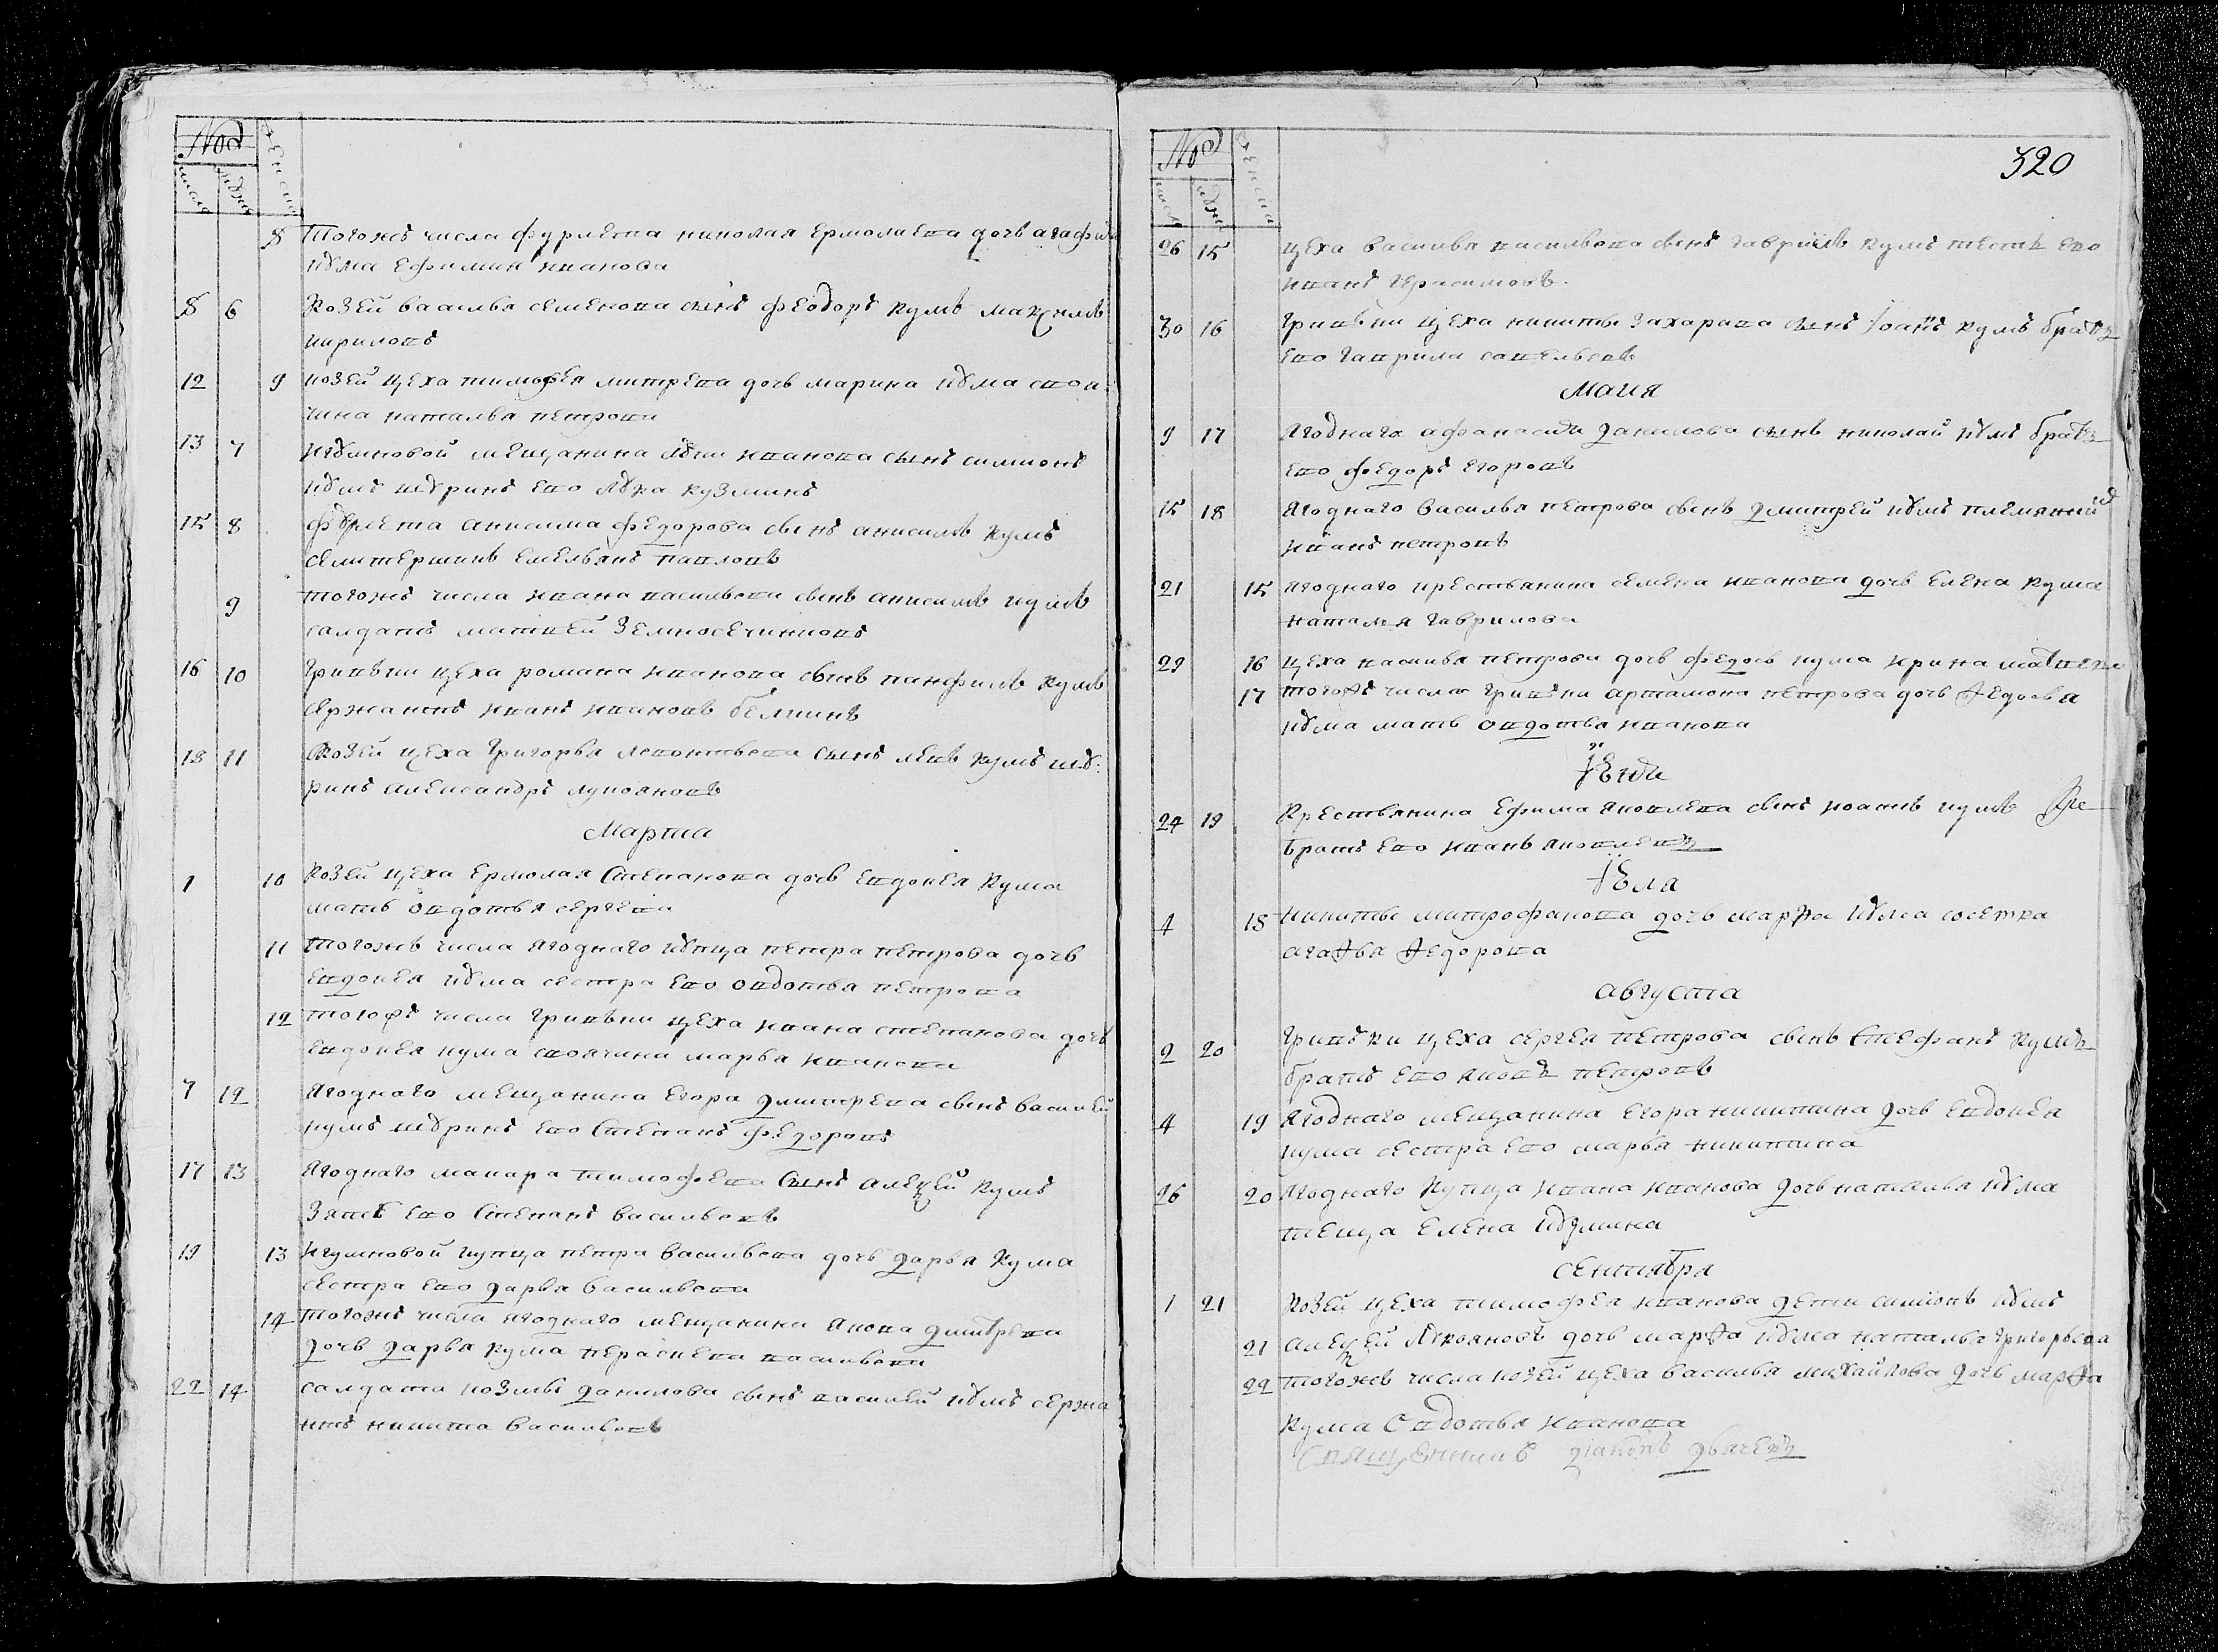 №
числа
мужска
женска
8 Тогожъ числа фурлета николая ермолиева дочь агафия
кума ефимия иванова
8 6 Козей василья семенова сынъ феодоръ кумъ максимъ
кириловъ
12 9 козей цеха тимофея митрева дочь марина кума своя
чина наталья петрова
13 7 Игумновой мещанина луки иванова сынъ симионъ
кумъ шуринъ ево лука кузминъ
15 8 фурлета анисима федорова сынъ анисимъ кумъ
селитершикъ емельянъ павловъ
9 тогожъ числа ивана васильева сынъ анисимъ кумъ
салдатъ матвей
16 10 Гривъки цеха романа иванова сынъ панфилъ кумъ
сержантъ иванъ ивановъ
18 11 Козей цеха григорья леонтьева сынъ левъ кумъ шу
ринъ александръ лукояновъ
Марта
1 10 Козей цеха ермолая Степанова дочь евдокея кума
мать овдотья сергева
11 Тогожъ числа ягоднаго купца петра петрова дочь
евдокея кума сестра ево овдотья петрова
12 тогожъ числа гривъки цеха ивана степанова дочь
евдокея кума своячина марья иванова
7 12 Ягоднаго мещанина егора дмитрева сынъ василей
кумъ шуринъ ево Степанъ федоровъ
17 13 Ягоднаго макара тимофева сынъ алексей кумъ
Зять ево Степанъ васильевъ
19 13 Игумновой купца петра васильева дочь дарья кума
сестра ево дарья васильева
14 Тогожъ числа ягоднаго мещанина якова дмитрева
дочь дарья кума пераскева васильева
22 14 салдата козмы данилова сынъ василей кумъ сержа
нтъ никита васильевъ
320
№
числа
мужска
женска
26 15 цеха василья васильева сынъ гавриилъ кумъ тесть ево
иванъ герасимовъ.
30 16 Гривъки цеха никиты захарава сынъ Іоанъ кумъ братъ
ево гаврила савельевъ
Маия
9 17 Ягоднаго афанасия данилова сынъ николай кумъ братъ
ево федоръ егоровъ
15 18 Ягоднаго василья петрова сынъ дмитрей кумъ племянник
иванъ петровъ
21 15 ягоднаго крестьянина семена иванова дочь елена кума
наталья гаврилова
29 16 цеха василья петрова дочь федосья кума ирина матвева
17 тогожъ числа гривъки артамона петрова дочь федосья
кума мать овдотья иванова
Іюня
24 19 Крестьянина ефима яковлева сынъ иоанъ кумъ
братъ ево иванъ яковлевъ
Іюля
4 18 Никиты митрофанова дочь марфа кума соседка
агафья федорова
августа
2 20 Гривъки цеха сергея петрова сынъ Стефанъ кумъ
братъ ево яковъ петровъ
4 19 Ягоднаго мещанина егора никитина дочь евдокея
кума сестра ево марья никитина
26 20 Ягоднаго купца ивана иванова дочь наталья кума
теща елена кузмина
сентября
1 21 Козей цеха тимофея иванова дети симионъ кумъ
21 алексей лукояновъ дочь марфа кума наталья григорьева
22 тогожъ числа козей цеха василья михайлова дочь марфа
кума овдотья иванова
Священникъ